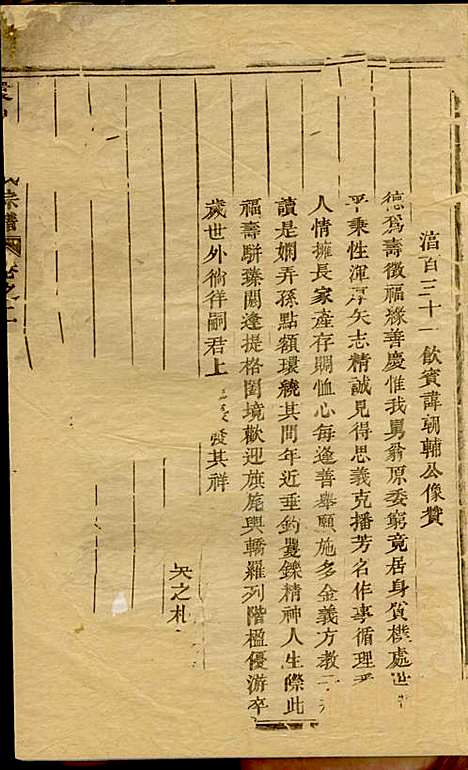 涪百三十一飲賓諱朝輔公像贊
德爲壽徵福緣善慶惟我舅翁原委窮竟居身質樸處世
平乘性渾厚矢志精誠見得思義克播芳名作事循理
人情擁長家產存賙恤心每逢善舉願施多金義方教子
讀是嫻弄孫點額環繞其間年近垂釣矍鑠精神人生際此
福壽駢臻閼逢提格閤境歡迎旗麾輿轎羅列階楹優游卒
歲世外徜徉嗣君上 愛其祥
矢之札
宗譜 卷之二